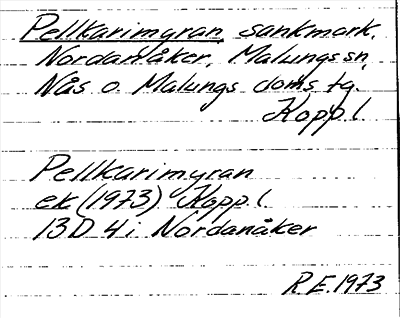 Pellkarimyran, sankmark,
Nordanåker, Malungs sn,
Nås o. Malungs doms tg.
Kopp. l.
Pellkarimyran
ek (1973) Kopp. l.
13D 4i Nordanåker
R.E. 1973